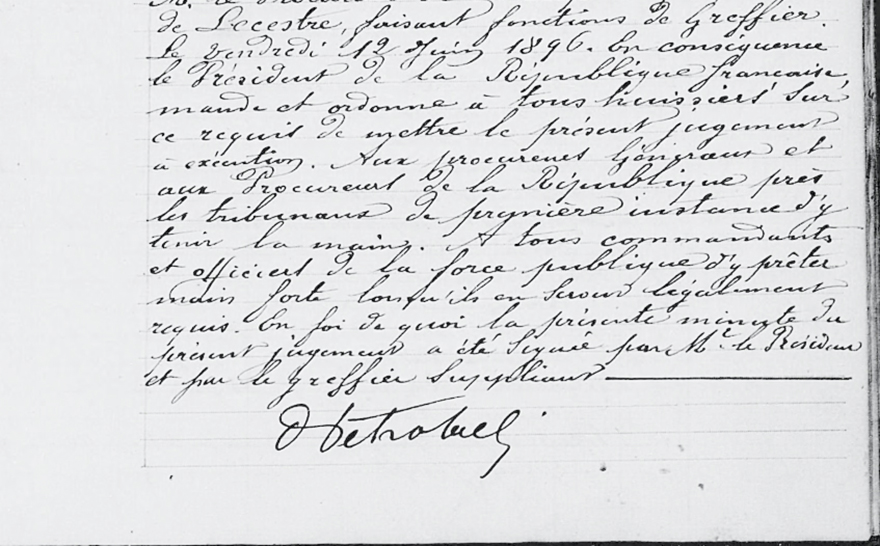 de Lecestre, faisant fonctions de Greffier.
Le Vendredi 12 Juin 1896. En conséquence
le Président de la République française
mande et ordonne à tous huissiers sur
ce requis de mettre le présent jugement
à exécution. Aux procureurs Généraux et
aux Procureurs de la République près
les tribunaux de première instance d'y
tenir la main. A tous commandants
et officiers de la force publique d'y prêter
main forte lorsqu'ils en seront légalement
requis. En foi de quoi la présente minute du
présent jugement a été signée par Mr le Président
et par le greffier suppliant